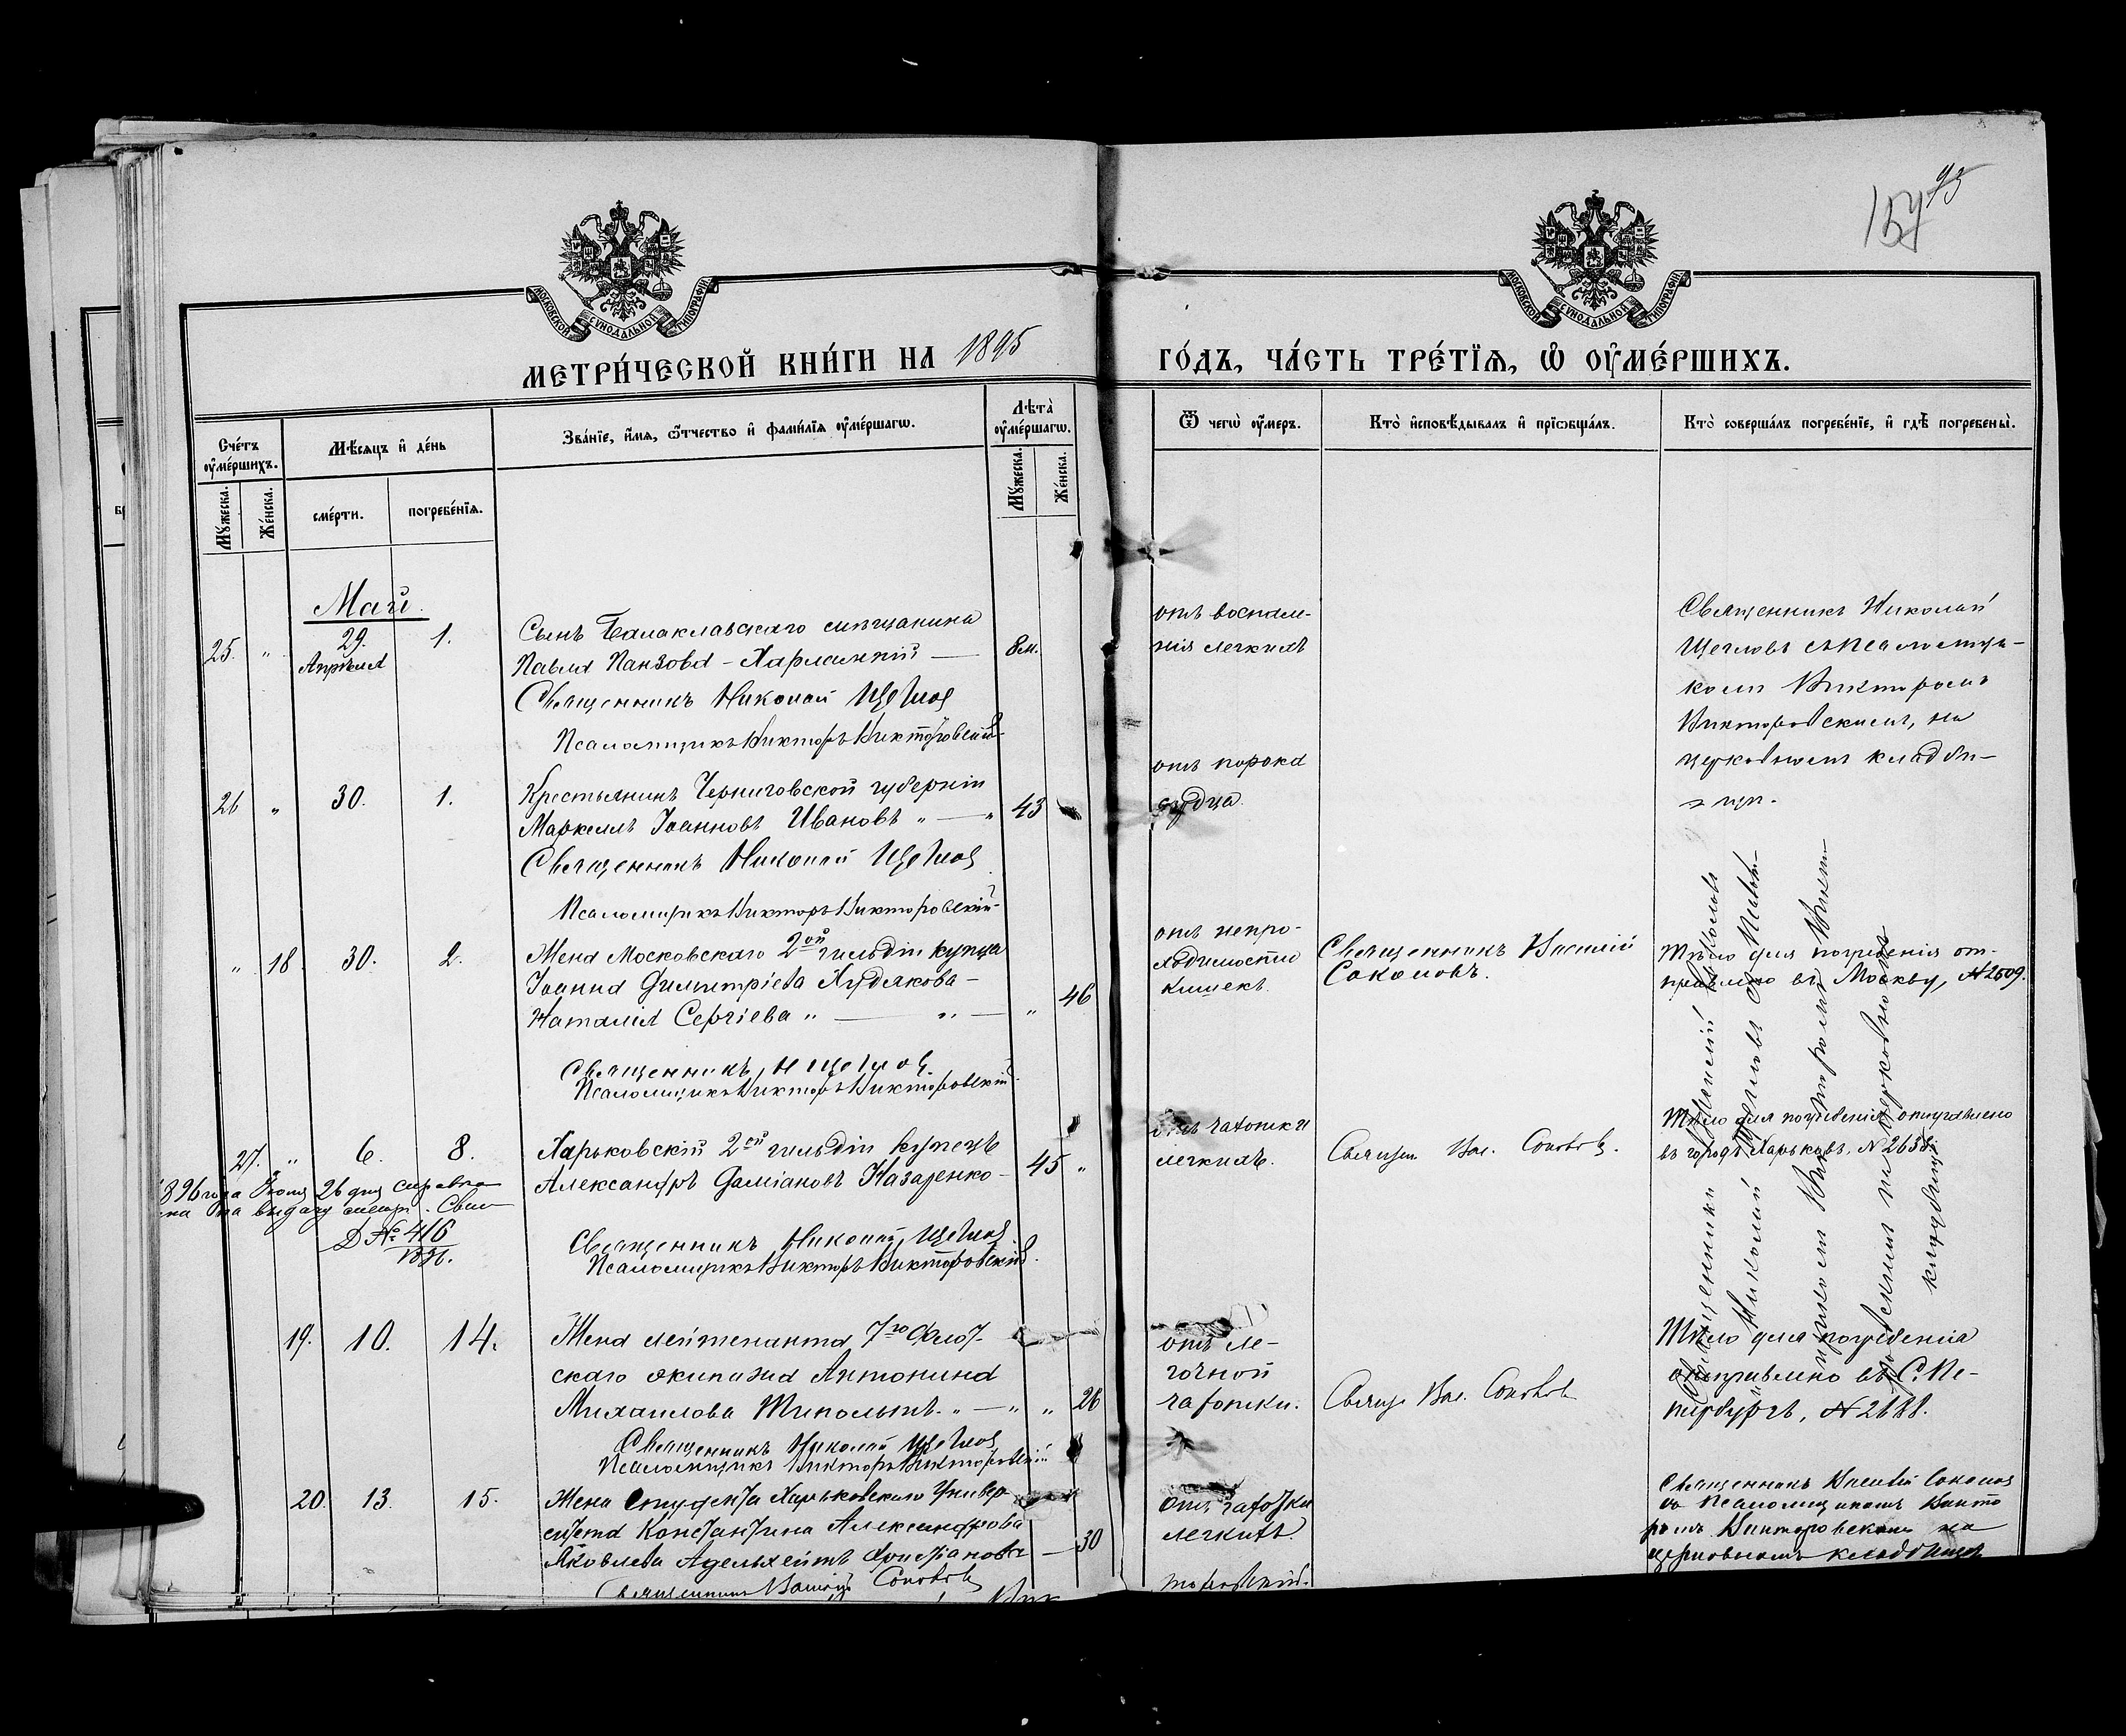 154 93
МОСКОВСКОЙ СѴНОДАЛЬНОЙ ТИПОГРАФІИ
МОСКОВСКОЙ СѴНОДАЛЬНОЙ ТИПОГРАФІИ
МЕТРИ́ЧЕСКОЙ КНИ́ГИ НА 1895 ГО́ДЪ, ЧА́СТЬ ТРЕ́ТЇѦ, Ѡ҆ ОУ҆МЕ́РШИХЪ.
Сче́тъ оу҆ме́ршихъ.
Мꙋ́жеска.
Же́нска.
Мѣ́сѧцъ и҆ де́нь
сме́рти.
погребе́нїѧ.
Зва́нїе, и҆́мѧ, ѻ҆́тчество и҆ фами́лїѧ оу҆ме́ршагѡ.
Лѣ́та оу҆ме́ршагѡ.
Мꙋ́жеска.
Же́нска.
Ѿ чегѡ̀ оу҆́меръ.
Кто̀ и҆сповѣ́дывалъ и҆ прїѡбща́лъ.
Кто̀ соверша́лъ погребе́нїе, и҆ гдѣ̀ погребены̀.
Май.
25. " 29. Апрѣля 1.
Сынъ Балаклавскаго мѣщанина
Павла Панзова - Харлампій — 8м.
Священникъ Николай Щегловъ
Псаломщикъ Викторъ Викторовскій
отъ воспале-
нія легкихъ
Священникъ Николай
Щегловъ съ Псаломщи-
комъ Викторомъ
Викторовскимъ, на
церковномъ кладби-
щѣ.
26 " 30. 1.
Крестьянинъ Черниговской губерніи
Маркеллъ Іоанновъ Ивановъ " — " 43
Священникъ Николай Щегловъ
Псаломщикъ Викторъ Викторовскій
отъ порока
сердца.
" 18. 30. 2.
Жена Московскаго 2ой гильдіи купца
Іоанна Димитріева Худякова -
Наталія Сергіева " — " — " 46
Священникъ Н Щегловъ.
Псаломщикъ Викторъ Викторовскій.
отъ непро-
ходимости
кишекъ
Священникъ Василій
Соколовъ.
Тѣло для погребенія от-
правлено въ Москву, № 2509.
27. " 6. 8.
Харьковскій 2ой гильдіи купецъ
Александръ Даміановъ Назаренко - 45 "
1896 года Іюня 26 дня справка
на выдачу метр. Свид
Д № 416
1896.
Священникъ Николай Щегловъ.
Псаломщикъ Викторъ Викторовскій.
отъ чахотки
легкихъ.
Священ Вас. Соколовъ.
Тѣло для погребенія отправлено
въ городъ Харьковъ, № 2638.
19. 10. 14.
Жена лейтенанта 7го Флот-
скаго экипажа Антонина
Михаилова Типольтъ. " — " " 26
Священникъ Николай Щегловъ
Псаломщикъ Викторъ Викторовскій
отъ ле-
гочной
чахотки.
Свящ Вас. Соколовъ
Тѣло для погребенія
отправлено въ С. Пе-
тербургъ, № 2688.
20. 13. 15.
Жена Студента Харьковскаго Универ
ситета Константина Александрова
Яковлева Адельхейтъ Христіанова — 30
Священникъ Василій Соколовъ
отъ чахотки
легкихъ
торовскій.
Священникъ Василій Соколовъ
съ Псаломщикомъ Викто
ромъ Викторовскимъ на
церковномъ кладбищѣ
Священники Василій Соколовъ
Николай Щегловъ съ Псалом-
щикомъ Викторомъ Викто-
ровскимъ на церковномъ
кладбищѣ